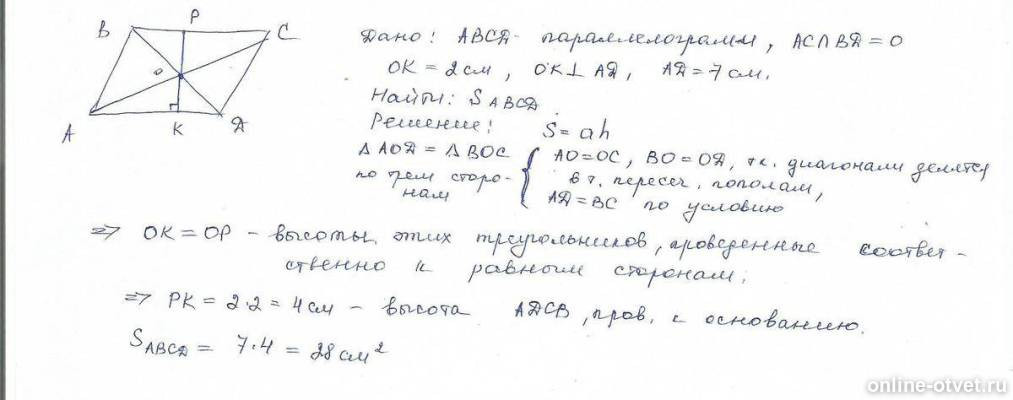 B P C
O
A K Д
Дано: ABCД - параллелограмм, AC∩BД=O
OK = 2 см, OK⊥AД, AД=7 см.
Найти: S ABCД
Решение: S = ah
Δ AOД = Δ BOC { AO=OC, BO=OД, т.к. диагонали делятся
по трем сторо- в т. пересеч. пополам,
нам AД=BC по условию
=> OK=OP - высоты этих треугольников, проведенные соответ-
ственно к равным сторонам;
=> PK = 2·2 = 4 см - высота AДCB, пров. к основанию.
S ABCД = 7·4 = 28 см²
online-otvet.ru